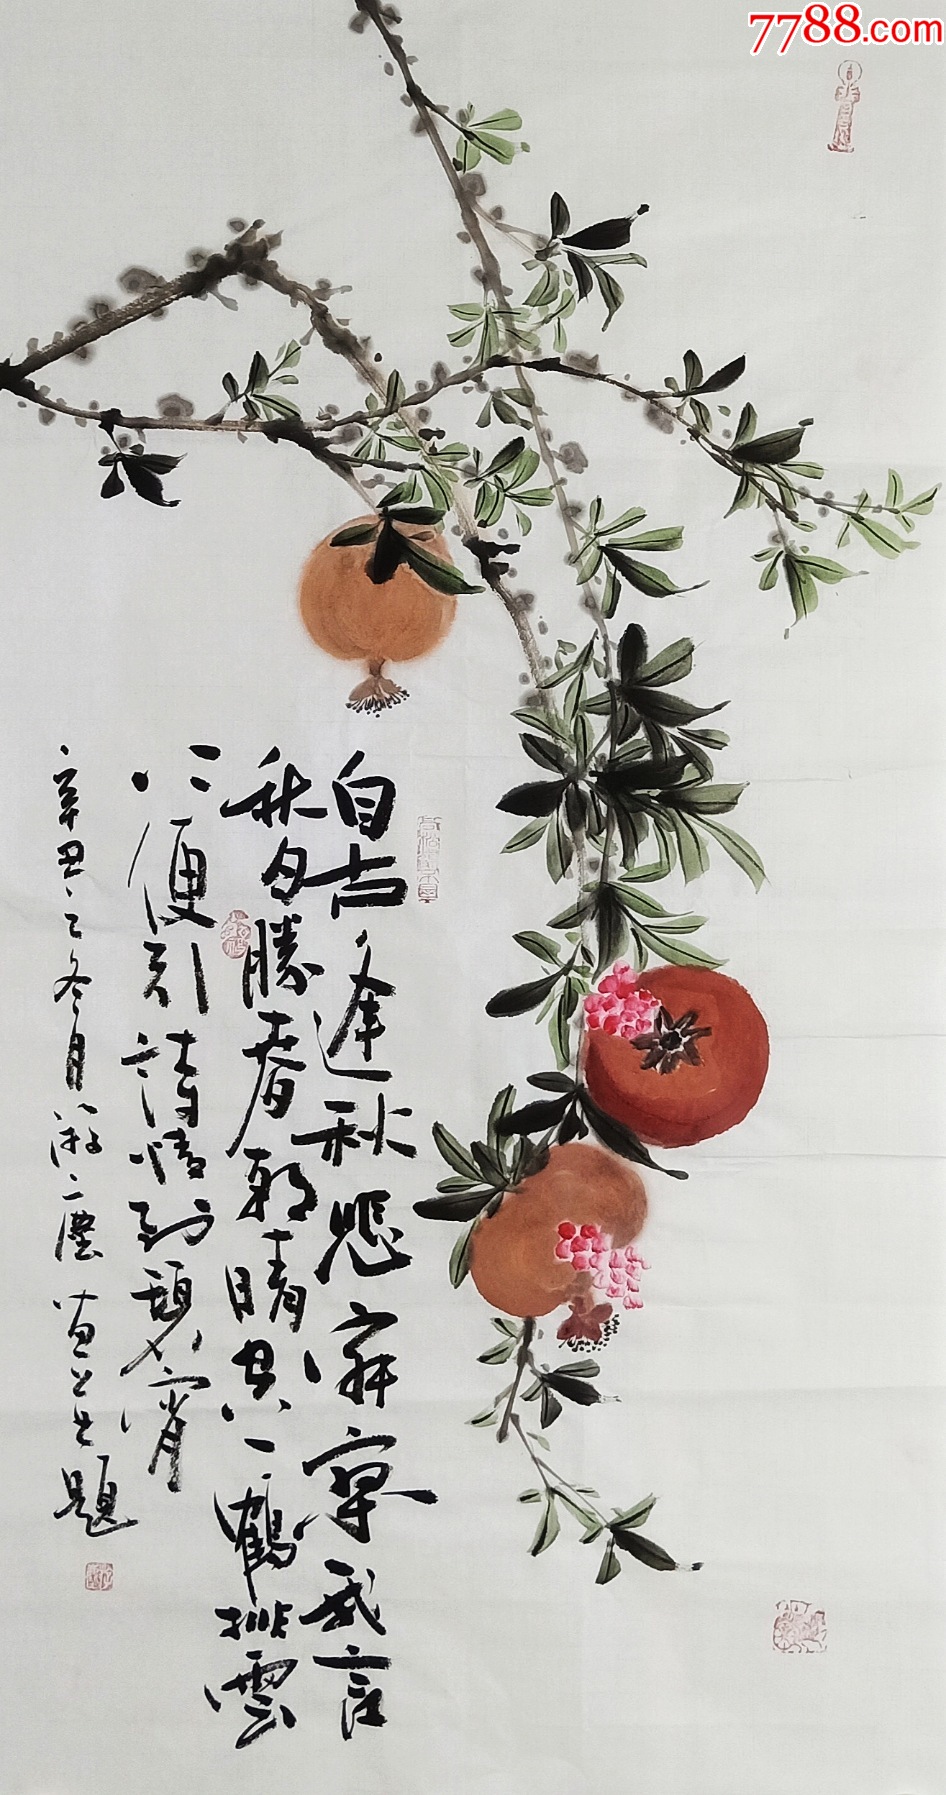 7788.com
自古逢秋悲寂寥我言
秋日勝春朝晴空一鶴排雲
上便引詩情到碧霄
辛丑之冬月 題